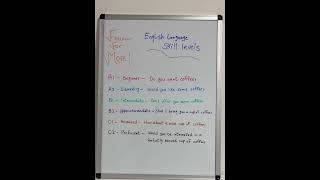 Follow
For
More!
English Language
Skill levels
A1 - Beginner - Do you want coffee?
A2 - Elementry - Would you like some coffee?
B1 - Intermediate - Can I give you some coffee?
B2 - Upperintermediate - Shall I bring you a cup of coffee?
C1 - Advanced - How about a nice cup of coffee?
C2 - Proficient - Would you be interested in a
brewed cup of coffee?